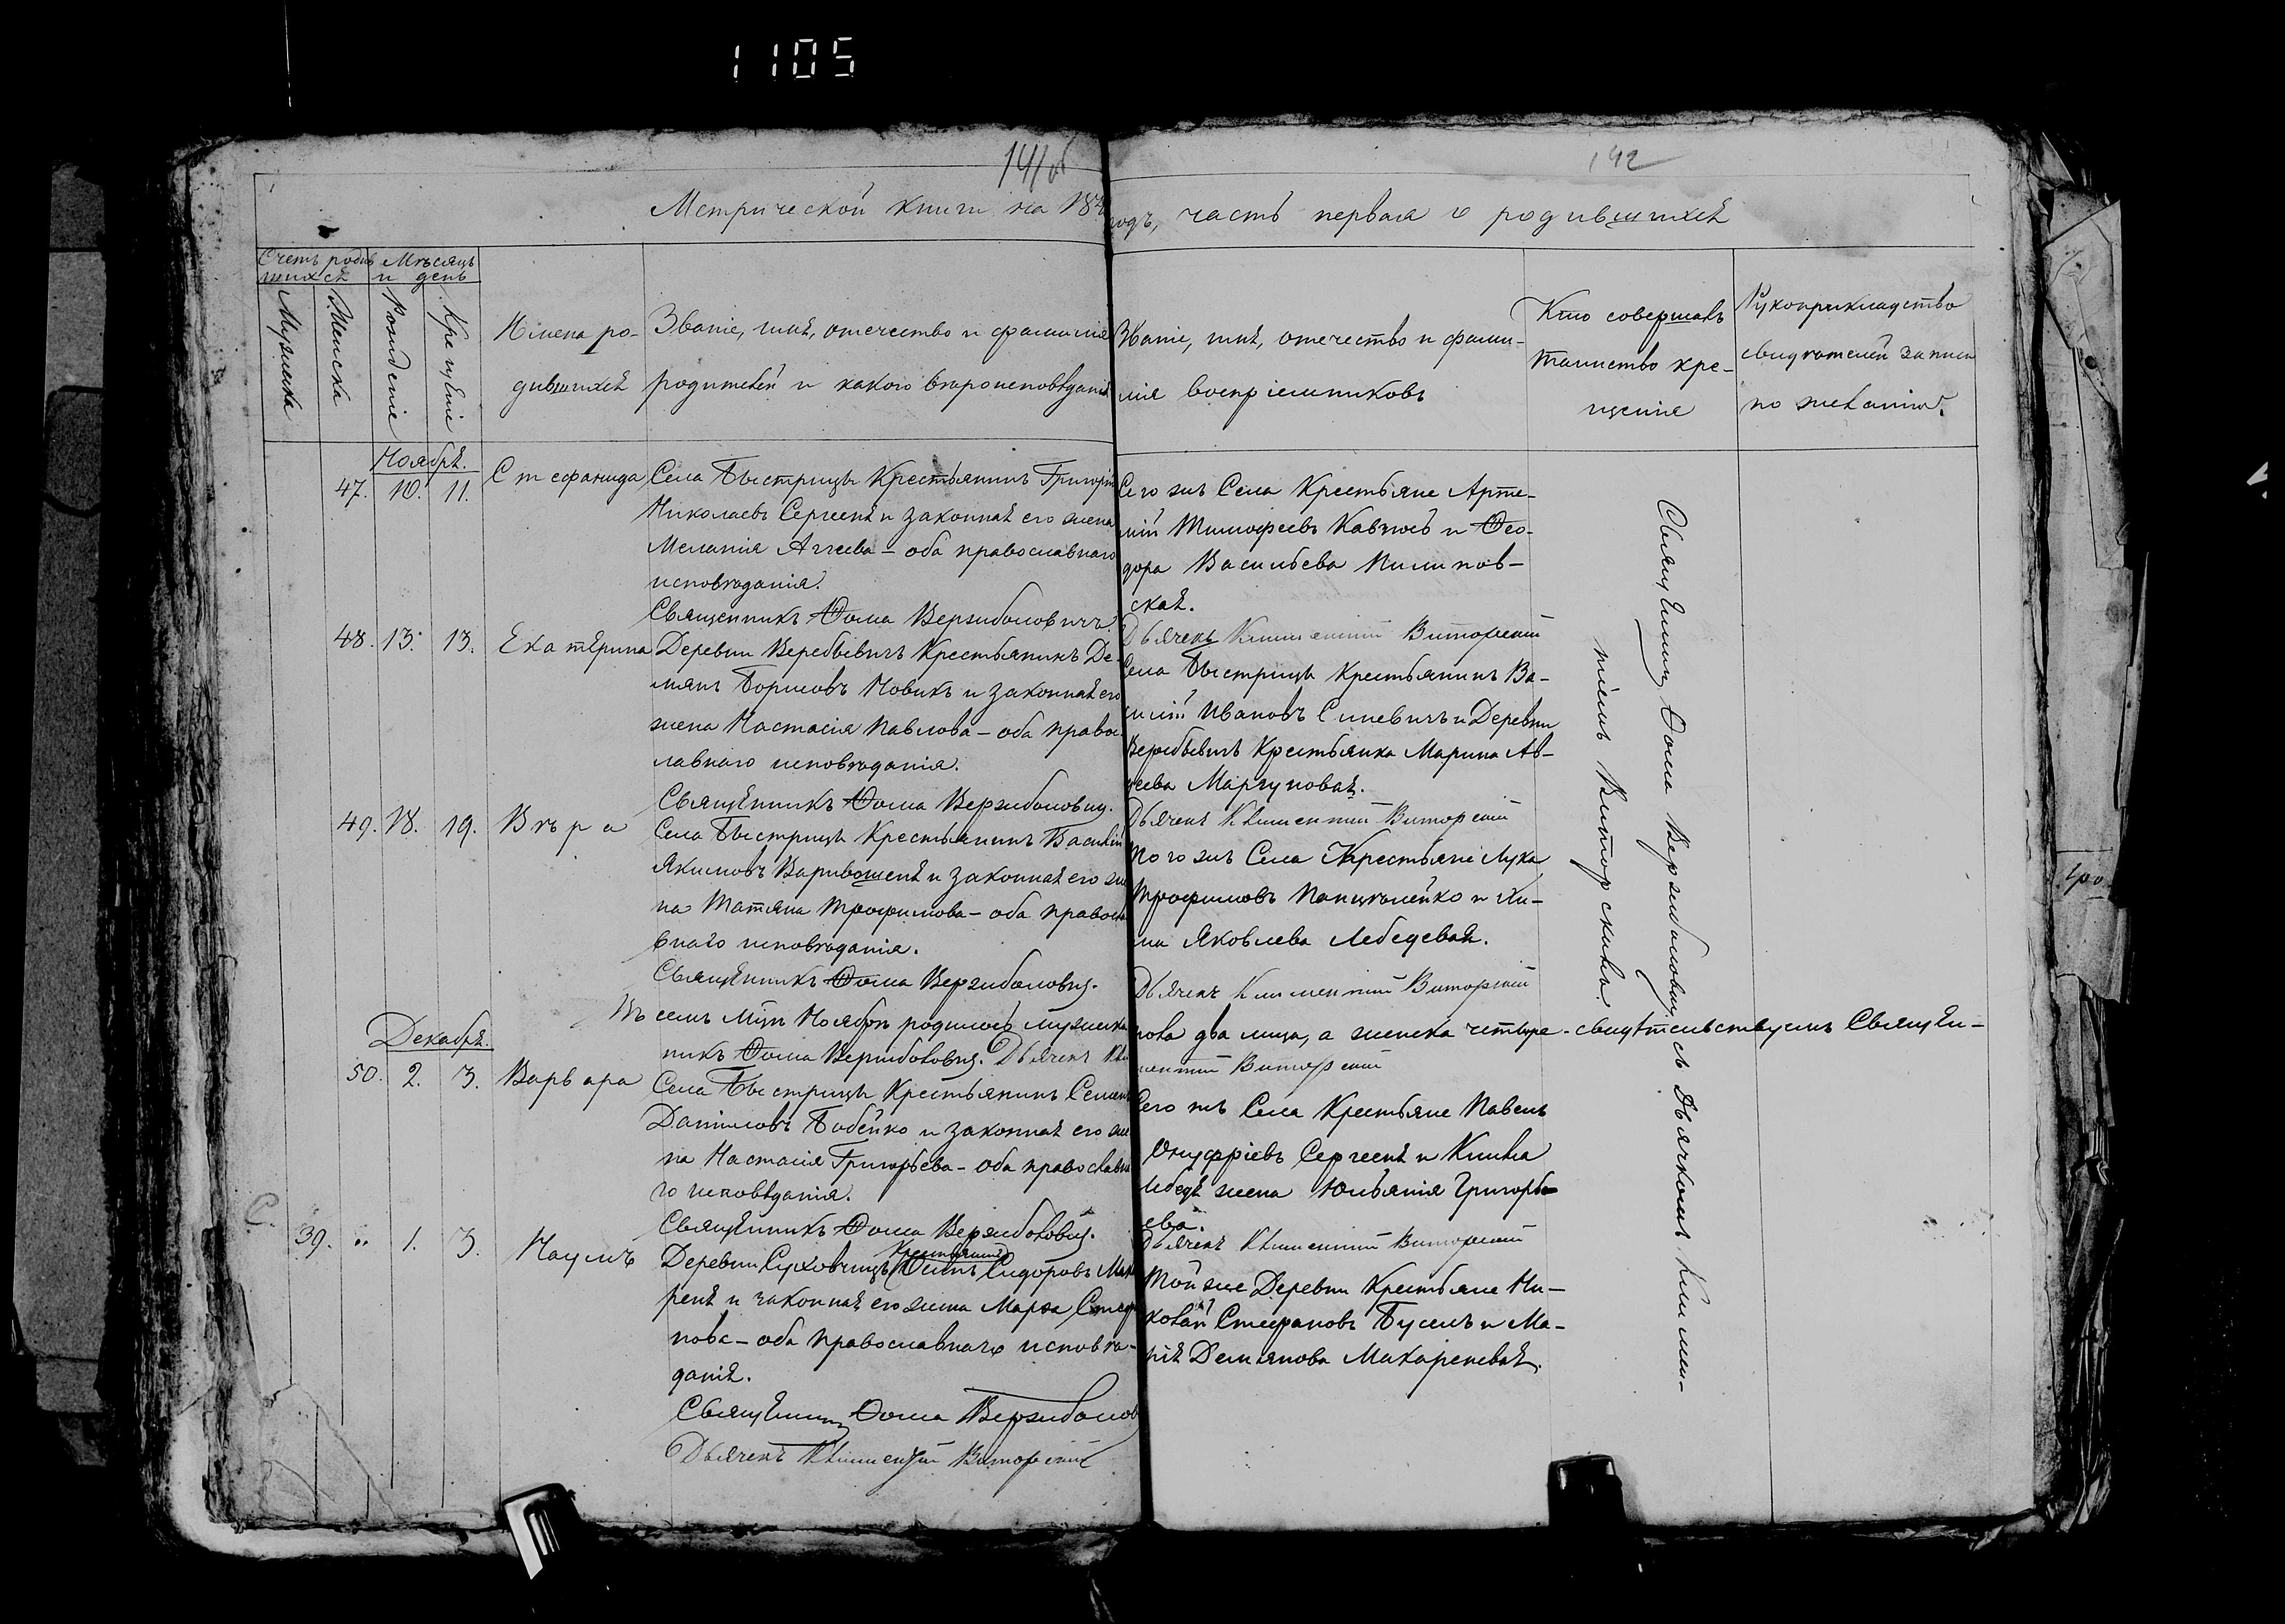 1105
141 об
142
Метрической книги на 184
годъ, часть первая о родившихся
Счетъ родив
шихся
Мѣсяцъ
и день
Мужеска
Женска
Рожденіе
Крещеніе
Имена ро-
дившихся
Званіе, имя, отечество и фамилія
родителей и какого вѣроисповѣданія
Званіе, имя, отечество и фами-
лія воспріемниковъ
Кто совершалъ
таинство кре-
щенія
Рукоприкладство
свидѣтелей записи
по желанію.
Ноября.
47. 10. 11. Стефанида
Села Быстрицы Крестьянинъ Григорій
Николаевъ Сергееня и законная его жена
Меланія Аггеева - оба православнаго
исповѣданія.
Священникъ Ѳома Вержболовичъ
Сего жъ Села Крестьяне Арте-
мій Тимофеевъ и Ѳео-
дора Васильева Пилипов-
ская.
Дьячекъ Климентій Виторскій
48. 13. 13. Екатерина
Деревни Веребьевичъ Крестьянинъ Де-
мянъ Борисовъ Новикъ и законная его
жена Настасія Павлова - оба правос
лавнаго исповѣданія.
Священникъ Ѳома Вержболовичъ.
Села Быстрицы Крестьянинъ Ва-
силій Ивановъ Синевичъ и Деревни
Веребьевичъ Крестьянка Марина Ав-
Маргуновая.
Дьячекъ Климентій Виторскій
49. 18. 19. Вѣра
Села Быстрицы Крестьянинъ Василій
Якимовъ Варивошеня и законная его же
на Татяна Трофимова - оба правосла
внаго исповѣданія.
Священникъ Ѳома Вержболовичъ.
Того жъ Села Крестьяне Лука
Трофимовъ Панцялейко и Ки-
Яковлева Лебедевая.
Дьячекъ Климентій Виторскій
Въ семъ Мцѣ Ноябрѣ родилось мужеска
пола два лица, а женска четыре - свидѣтельствуемъ Священ-
никъ Ѳома Вержболовичъ. Дьячекъ Кли
ментій Виторскій
Декабря.
50. 2. 3. Варвара
Села Быстрицы Крестьянинъ Семенъ
Даниловъ Бобейко и законная его же
на Настасія Григорьева - оба православна
го исповѣданія.
Священникъ Ѳома Вержболовичъ.
Сего жъ Села Крестьяне Павелъ
Онуфріевъ Сергееня и Клима
Лебедя жена Юльянія Григорь
ева.
Дьячекъ Климентій Виторскій
С.
39. " 1. 3. Наумъ
Крестьянинъ
Деревни Суховчицъ Осипъ Сидоровъ Мака
реня и законная его жена Марѳа Стефа
нова - оба православнаго исповѣ-
данія.
Священникъ Ѳома Вержболов
Дьячекъ Климентій Виторскій
Той же Деревни Крестьяне Ни-
колай Стефановъ Буселъ и Ма-
рія Демянова Макареневая.
Священникъ Ѳома Вержболовичъ съ Дьячкомъ Климен-
тіемъ Виторскимъ.